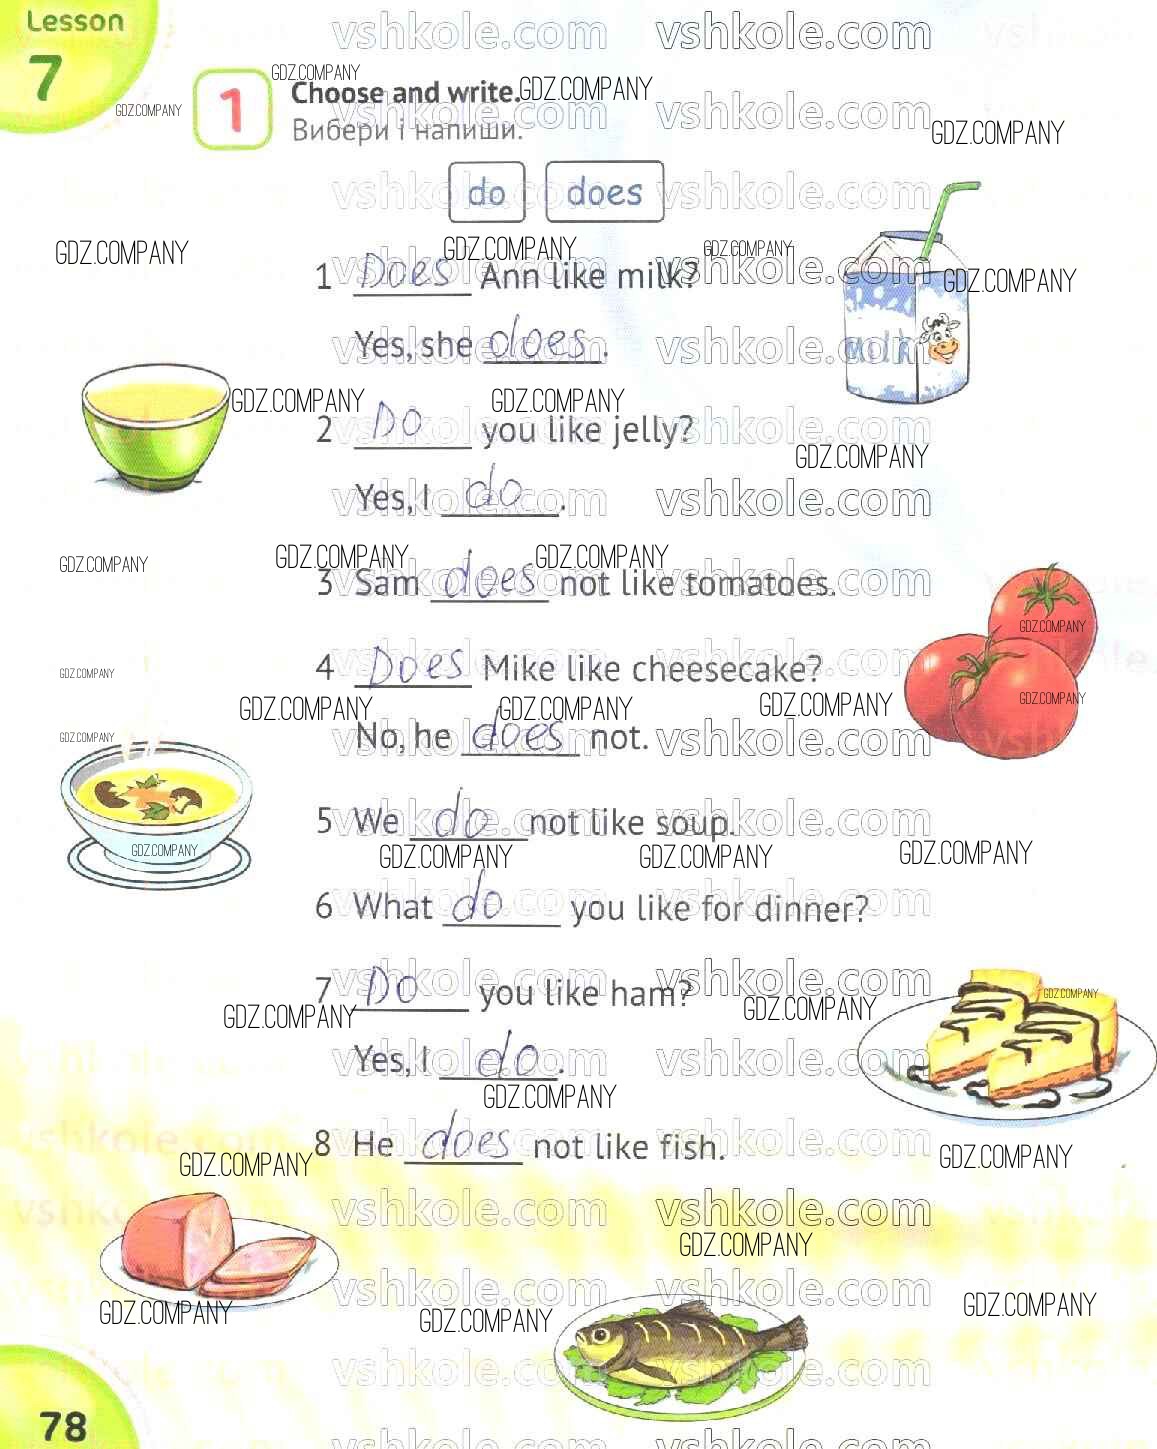 Lesson
7
1 Choose and write.
Вибери і напиши.
do does
1 Does Ann like milk?
Yes, she does.
milk
2 Do you like jelly?
Yes, I do.
3 Sam does not like tomatoes.
4 Does Mike like cheesecake?
No, he does not.
5 We do not like soup.
6 What do you like for dinner?
7 Do you like ham?
Yes, I do.
8 He does not like fish.
78
vshkole.com
GDZ.COMPANY